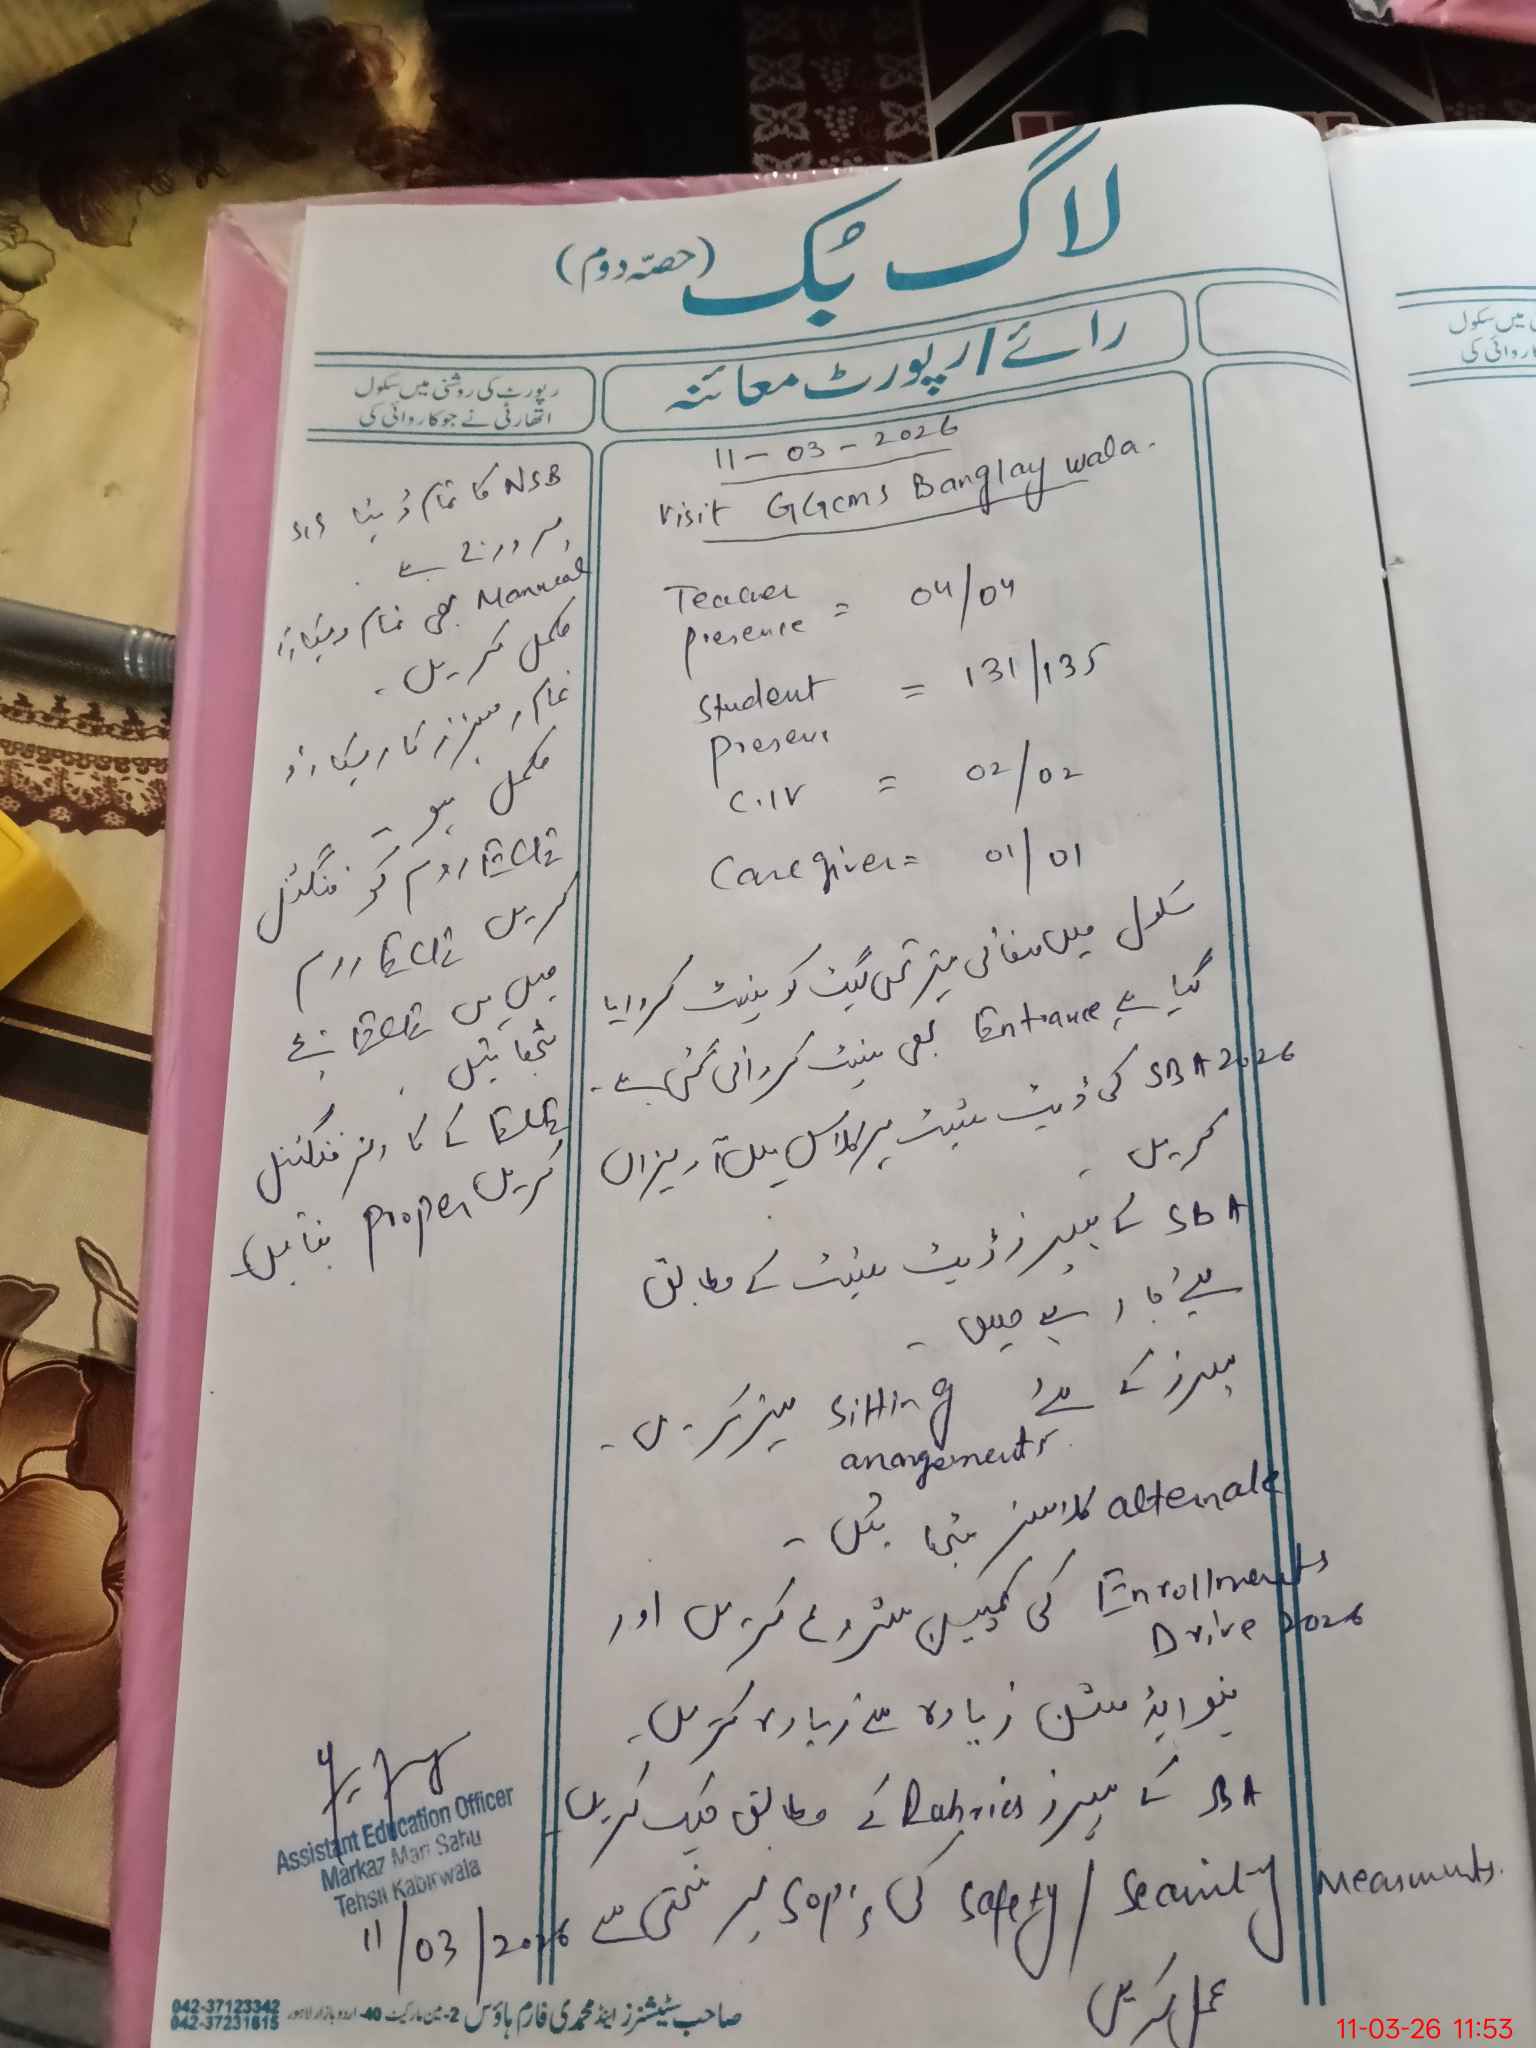 لاگ بُک (حصّہ دوم)
رائے/رپورٹ معائنہ
رپورٹ کی روشنی میں سکول
اتھارٹی نے جو کاروائی کی
11-03-2026
Visit GGCMS Banglay wala.
Teacher presence = 04/04
Student present = 131/135
C.IV = 02/02
Caregiver = 01/01
سکول میں صفائی بہتر تھی گیٹ کو پینٹ کروایا
گیا ہے Entrance بھی پینٹ کروائی گئی ہے۔
SBA 2026 کی ڈیٹ شیٹ ہر کلاس میں آویزاں
کریں۔
SBA کے پیپرز ڈیٹ شیٹ کے مطابق
لیے جا رہے ہیں۔
پیپرز کے لئے Sitting arrangements بہتر کریں۔
alternate کلاسز بٹھائیں۔
Enrollments Drive 2026 کی کمپین شروع کریں اور
نیو ایڈمشن زیادہ سے زیادہ کریں۔
SBA کے پیپرز Rubrics کے مطابق چیک کریں۔
Safety / Security Measurments کی SOP's پر سختی سے
عمل کریں
NSB کا تمام ڈیٹا SIS
پر ہے
Manual بھی تمام ریکارڈ
مکمل کریں۔
تمام رجسٹرز کا ریکارڈ
مکمل ہو۔
ECE روم کو فنگشنل
کریں ECE روم
میں ہی ECE بچے
بٹھائیں
ECE کے کارنر فنگشنل
کریں Proper بنائیں۔
Assistant Education Officer
Markaz Mari Sahu
Tehsil Kabirwala
11/03/2026
صاحب سٹیشنرز اینڈ محمدی فارم ہاؤس 2-مین مارکیٹ 40-اردو بازار لاہور
042-37123342
042-37231815
میں سکول
کاروائی کی
11-03-26 11:53